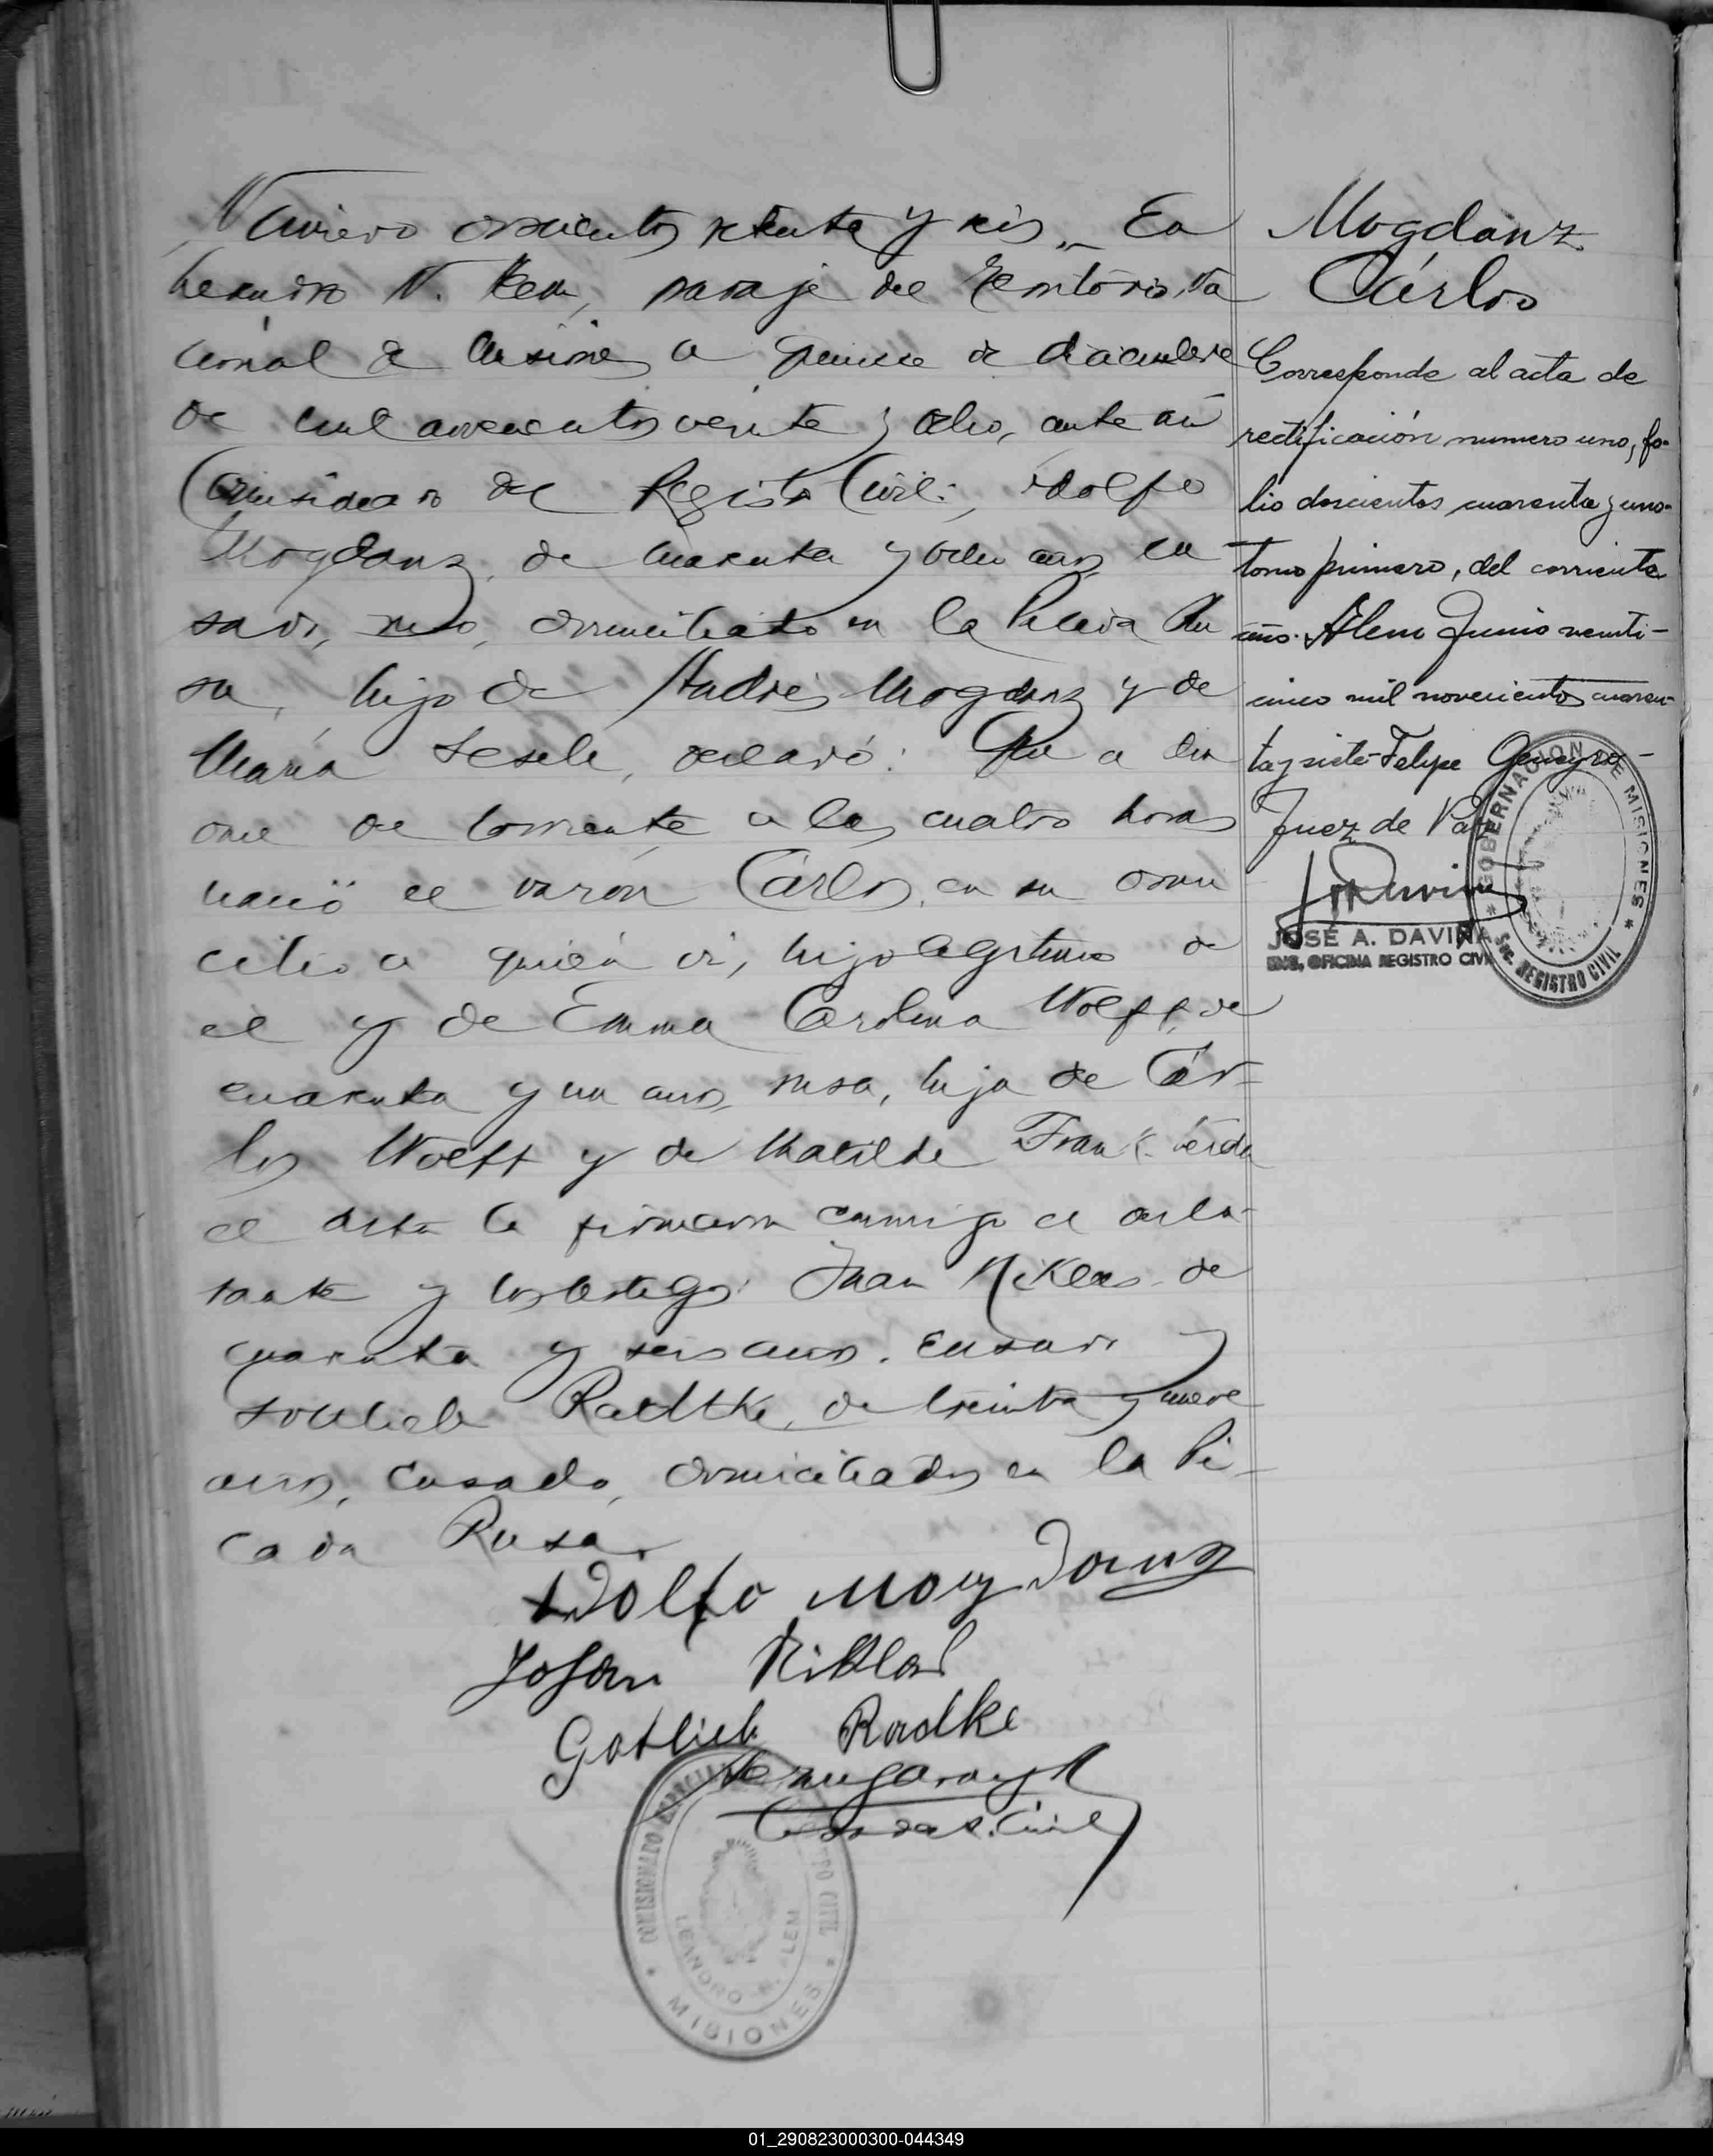 Número doscientos setenta y seis.- En
Leandro N. Alem, paraje del Territorio Na
cional de Misiones a quince de diciembre
de mil novecientos veinte y ocho, ante mi
Comisionado del Registro Civil; Adolfo
Mogdanz, de cuarenta y ocho años, ca
sado, ruso, domiciliado en la Picada Ru
sa, hijo de Andrés Mogdanz y de
María Sesele, declaró: Que a dia
once del corriente a las cuatro horas
nació el varón Cárlos, en su domi
cilio a quién vi, hijo legítimo de
el y de Emma Carolina Wolff, de
cuarenta y un años, rusa, hija de Cár-
los Wolff y de Matilde Frank. Leida
el acta la firmaron conmigo el decla-
rante y los testigos: Juan Niklas de
cuarenta y seis años, casado y
Gottlieb Radtke, de treinta y nueve
años, casado, domiciliados en la Pi-
cada Rusa.
Adolfo Mogdanz
Johan Niklas
Gottlieb Radke
R. Civil
COMISIONADO CIVIL
LEANDRO N. ALEM
* MISIONES *
Mogdanz
Cárlos
Corresponde al acta de
rectificación numero uno, fo-
lio doscientos cuarenta y uno-
tomo primero, del corriente
año. Alem Junio veinti-
cinco mil novecientos cuaren-
ta y siete- Felipe
Juez de Paz
JOSÉ A. DAVIÑA
ENC. OFICINA REGISTRO CIVIL
* GOBERNACION DE MISIONES *
Sec. REGISTRO CIVIL
01_290823000300-044349